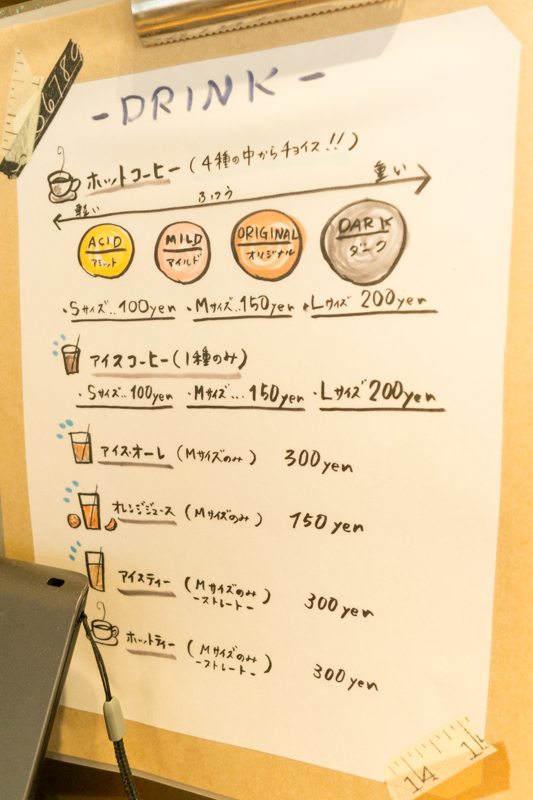 6789
-DRINK-
ホットコーヒー(4種の中からチョイス!!)
軽い ふつう 重い
ACID MILD ORIGINAL DARK
アシッド マイルド オリジナル ダーク
・Sサイズ..100yen ・Mサイズ...150yen ・Lサイズ 200yen
アイスコーヒー(1種のみ)
・Sサイズ..100yen ・Mサイズ...150yen ・Lサイズ 200yen
アイス・オーレ(Mサイズのみ) 300yen
オレンジジュース(Mサイズのみ) 150yen
アイスティー(Mサイズのみ -ストレート-) 300yen
ホットティー(Mサイズのみ -ストレート-) 300yen
14